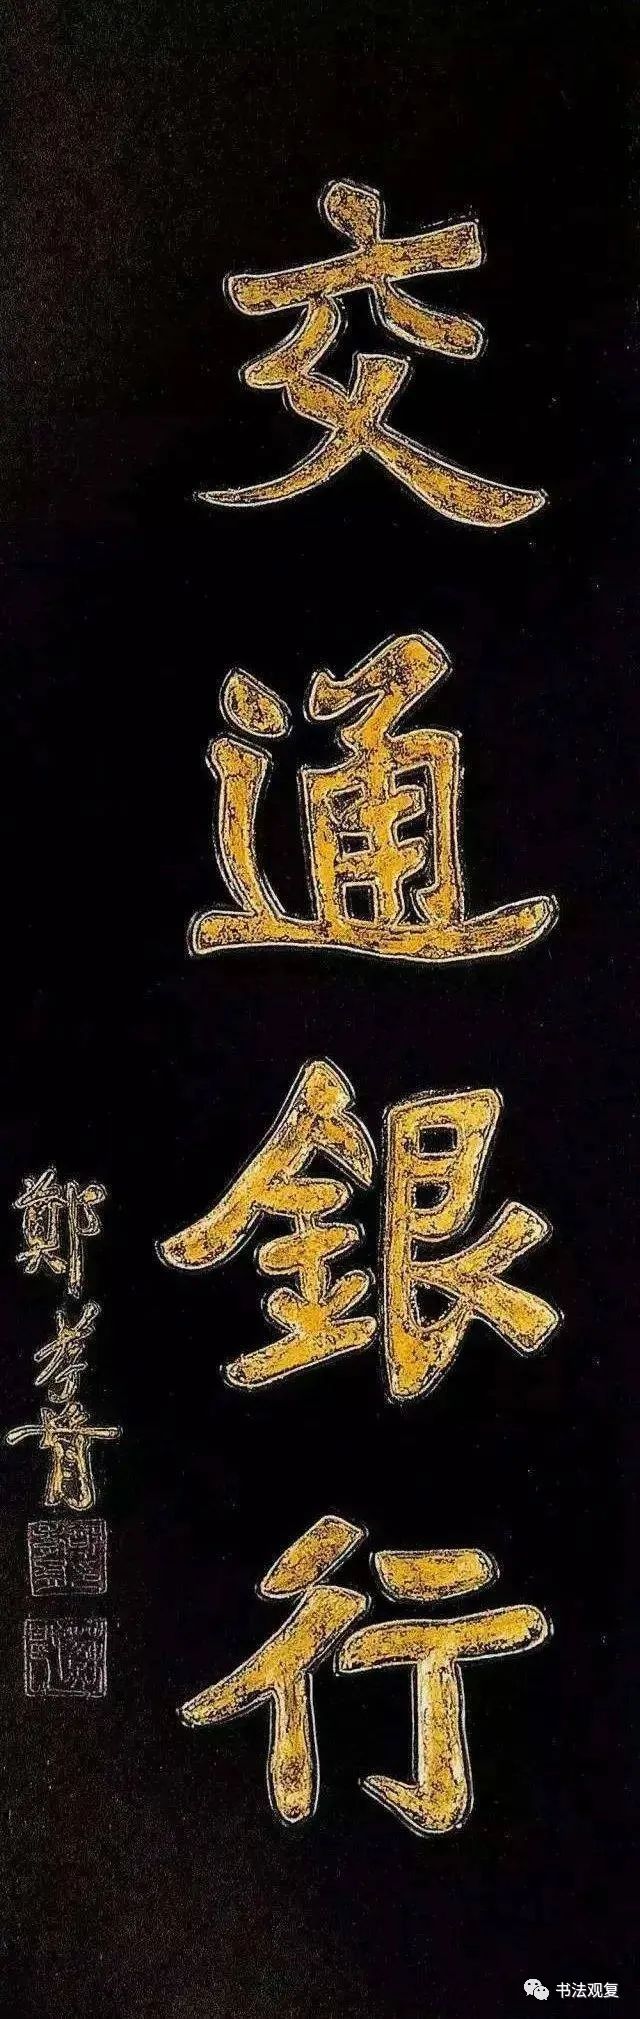 交通銀行
鄭孝胥
书法观复